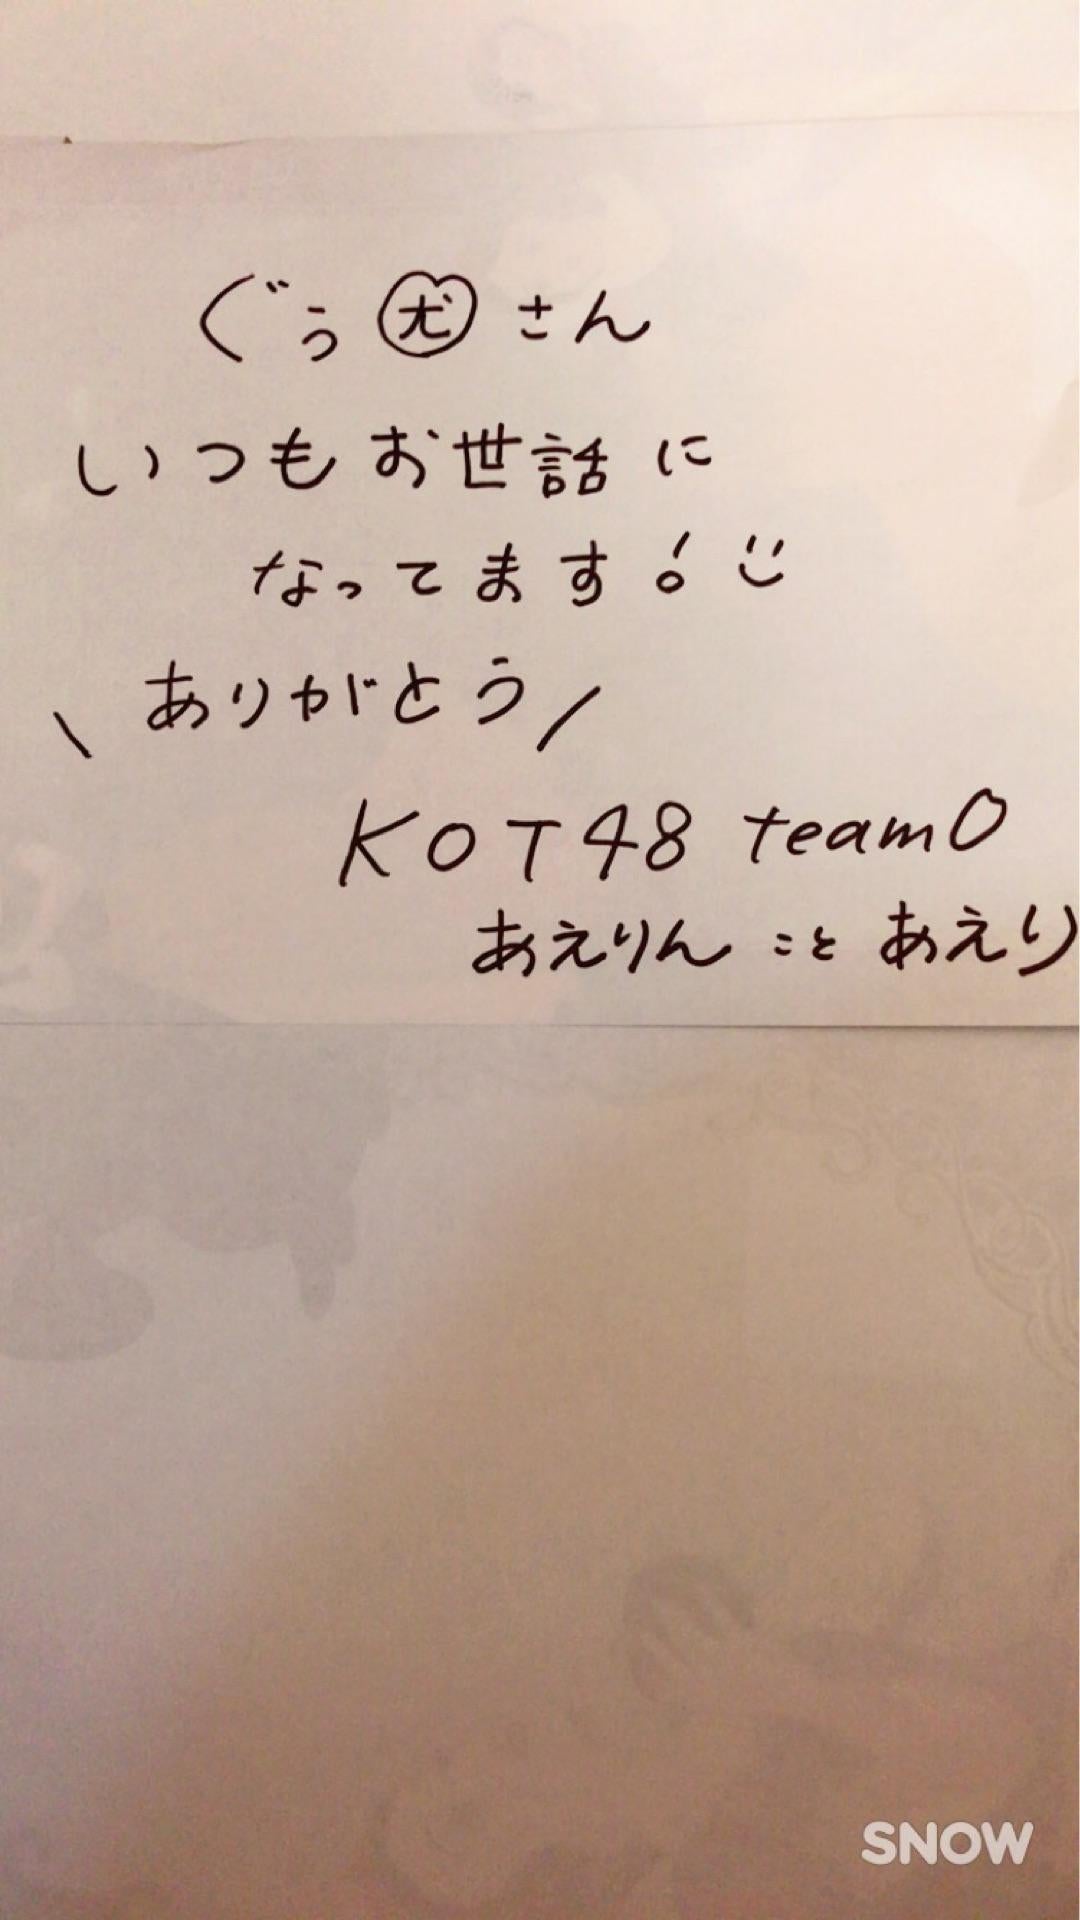 ぐぅ尤さん
いつもお世話に
なってます!
\ ありがとう /
KOT48 teamO
あえりん こと あえり
SNOW